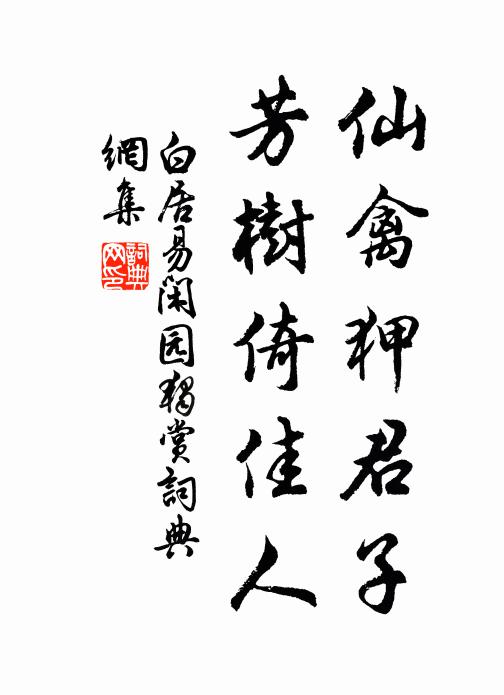 仙禽狎君子
芳樹倚佳人
白居易闲园獨賞詞典
網集
詞典
网印